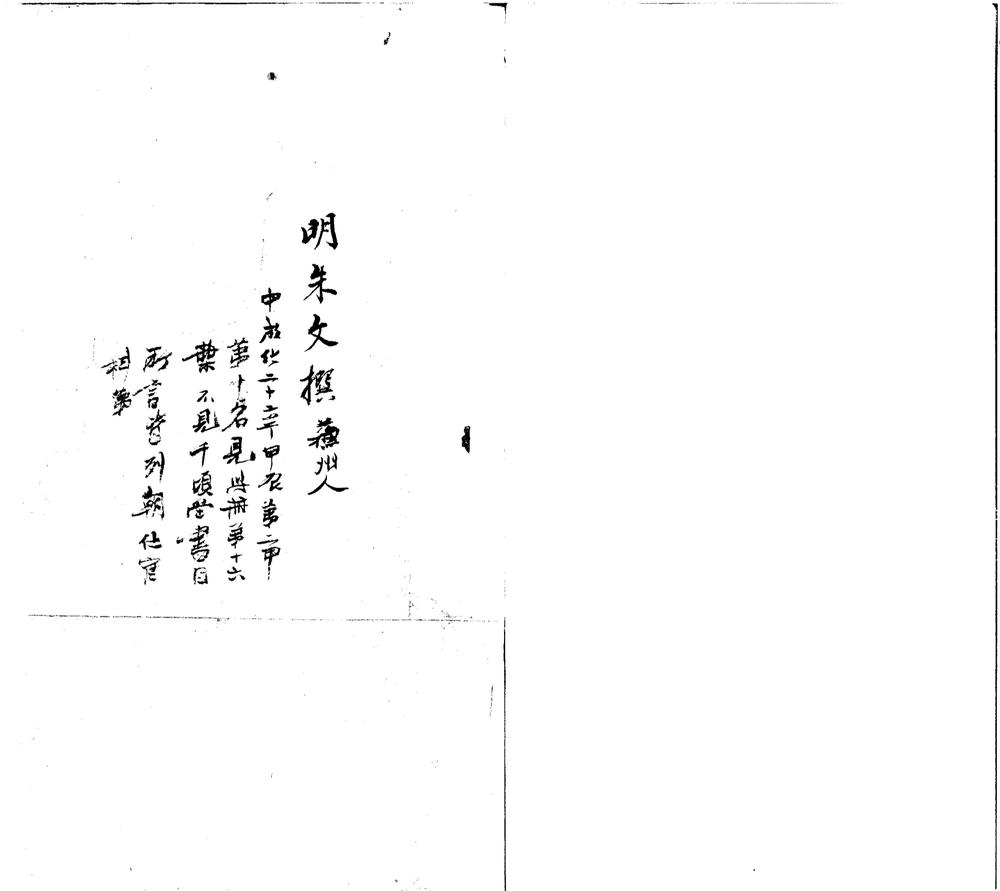 明朱文撰 蘇州人
中成化二十年甲辰第二甲
第十名見此冊第十六
葉不見千頃堂書目
所言皆列朝仕宦
科第